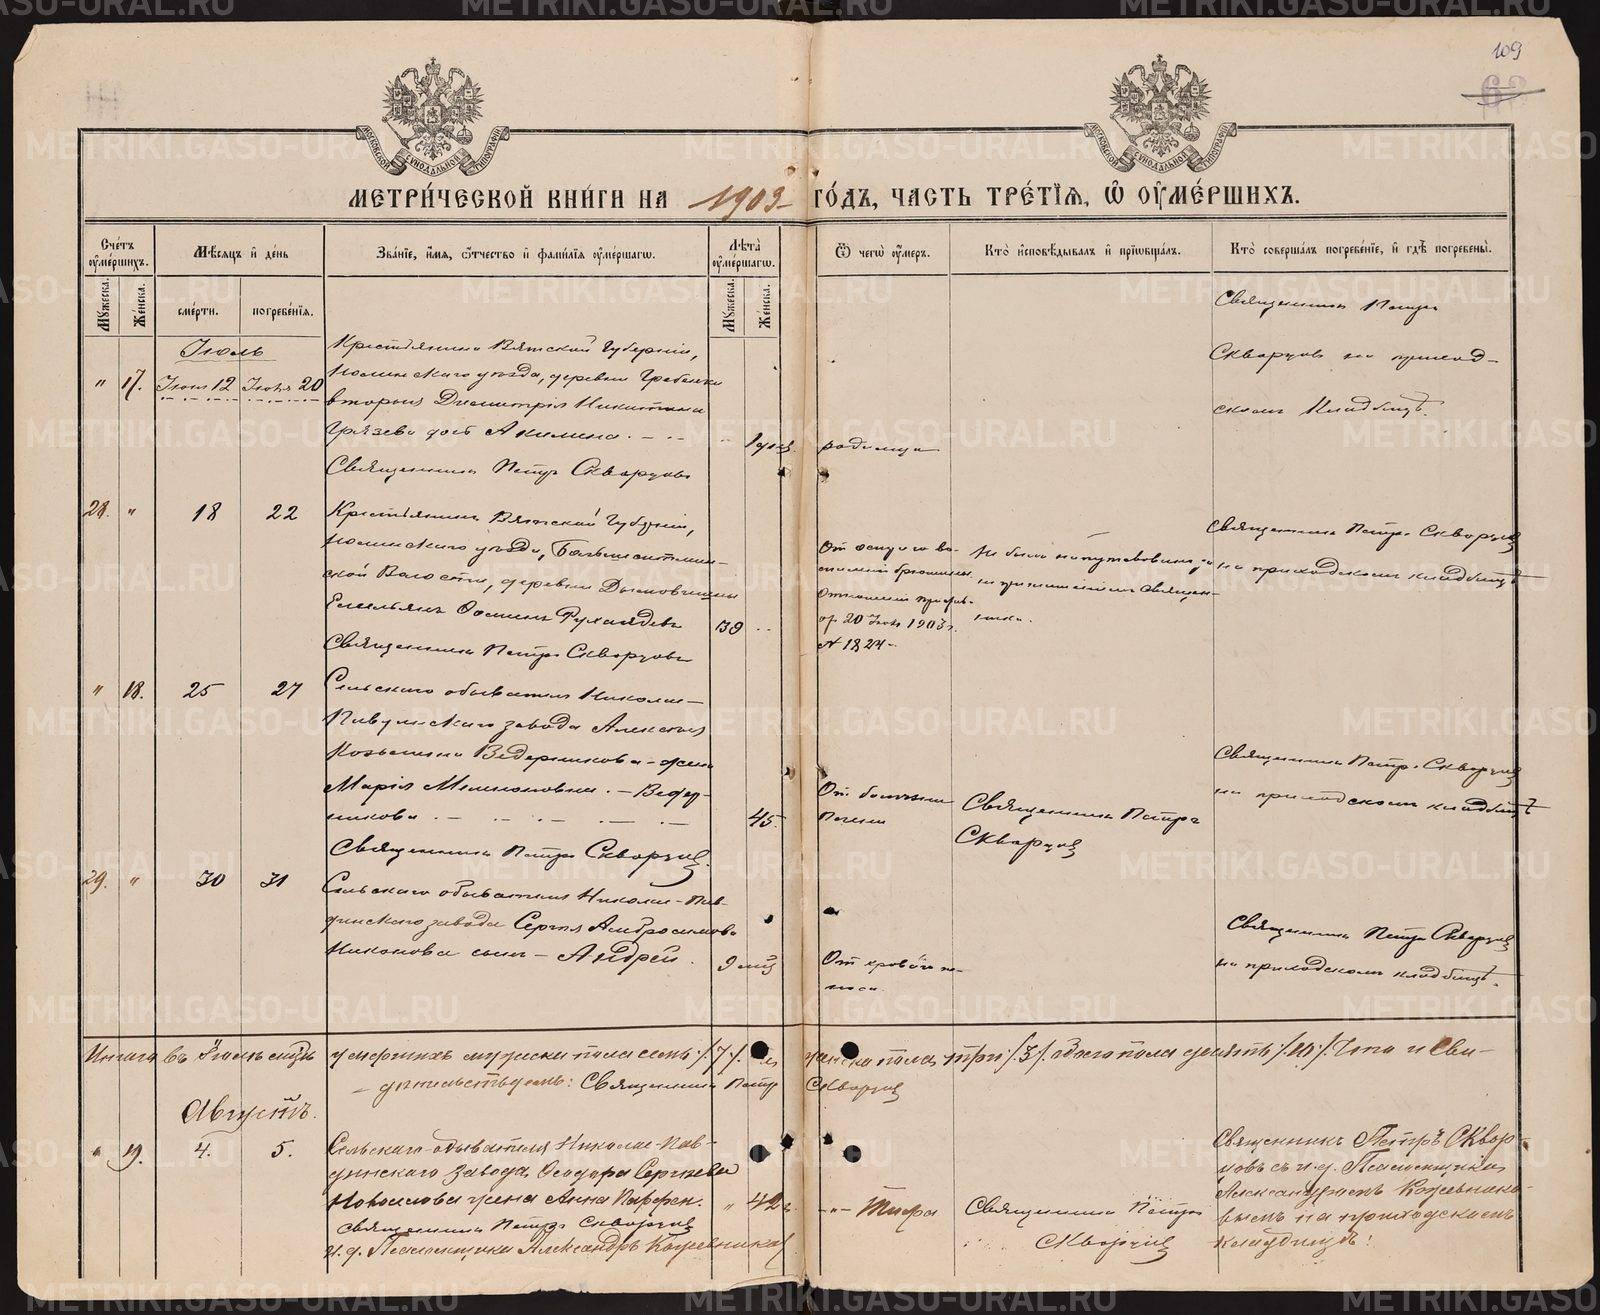 109
63
МОСКОВСКОЙ СѴНОДАЛЬНОЙ ТИПОГРАФІИ
МОСКОВСКОЙ СѴНОДАЛЬНОЙ ТИПОГРАФІИ
МЕТРИ́ЧЕСКОЙ КНИ́ГИ НА 1903 ГО́ДЪ, ЧАСТЬ ТРЕ́ТІѦ, Ѽ ОУ҆МЕ́РШИХЪ.
Сче́тъ оу҆ме́ршихъ.
Мѣ́сѧцъ и҆ де́нь
Зва́нїе, и҆́мѧ, ѻ҆́тчество и҆ фами́лїѧ оу҆ме́ршагѡ.
Лѣ́та оу҆ме́ршагѡ.
Ѿ чегѡ̀ оу҆́меръ.
Кто̀ и҆сповѣ́дывалъ и҆ прїѡбща́лъ.
Кто̀ соверша́лъ погребе́нїе, и҆ гдѣ̀ погребены̀.
Му́жеска.
Же́нска.
сме́рти.
погребе́нїѧ.
Му́жеска.
Же́нска.
Іюль
" 17. Іюля 12 Іюля 20
Крестьянина Вятской Губерніи,
Нолинскаго уѣзда, деревни Гребенки
вторыя Димитрія Никитина
Грязева дочь Акилина
1 родимца
Священникъ Петръ Скворцовъ
Священникъ Петръ
Скворцовъ на приход-
скомъ кладбищѣ.
28. " 18 22
Крестьянинъ Вятской Губерніи,
Нолинскаго уѣзда,
ской Волости, деревни
Емельянъ Ѳоминъ
39
Священникъ Петръ Скворцовъ
От остраго во-
спаленія брюшины
Отношеніе
20 Іюля 1903 г.
№ 1824
Не былъ напутствованъ
Священникъ Петръ Скворцовъ
на приходскомъ кладбищѣ
" 18. 25 27
Сельскаго обывателя Николае-
Павдинскаго завода Алексѣя
Козьмина Ведерникова жена
Марія Ведер-
никова
45
Священникъ Петръ Скворцовъ.
От болѣзни
печени
Священникъ Петръ
Скворцовъ
Священникъ Петръ Скворцовъ
на приходскомъ кладбищѣ
29. " 30 31
Сельскаго обывателя Николае-Пав-
динскаго завода Сергѣя Амвросимова
Никонова сынъ - Андрей.
9 мѣс
От кроваго по-
носа
Священникъ Петръ Скворцовъ
на приходскомъ кладбищѣ.
Итого въ Іюлѣ мѣсяцѣ умершихъ мужеска пола семь /7/, женска пола три /3/, обоего пола десять /10/. Что и сви-
дѣтельствуемъ: Священникъ Петръ Скворцовъ
Августъ.
" 19. 4. 5.
Сельскаго обывателя Николае-Пав-
динскаго завода Ѳеодора Сергѣева
Новоселова жена Анна Парфен.
" 42 г. Тифа
Священникъ Петръ Скворцовъ
и. д. Псаломщика Александръ Кожевниковъ
Священникъ Петръ
Скворцовъ
Священникъ Петръ Сквор-
цовъ съ и. д. Псаломщика
Александромъ Кожевнико-
вымъ на приходскомъ
кладбищѣ.
METRIKI.GASO-URAL.RU